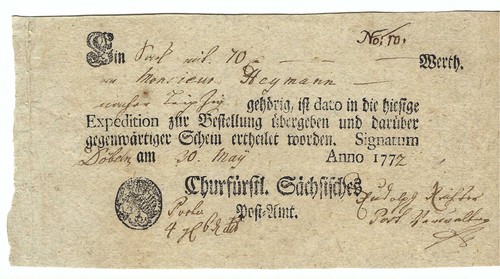 No: 10.
Ein Pack mit 70 Werth.
an Monsieur Heymann
nacher Leipzig gehörig, ist dato in die hiesige
Expedition zür Bestellung übergeben und darüber
gegenwärtiger Schein ertheilet worden. Signatum
Döbeln am 30. May Anno 1772
Churfürstl. Sächsisches
Post-Amt.
Rudolph Richter
Porto
Post Verwalter
4 gl 6